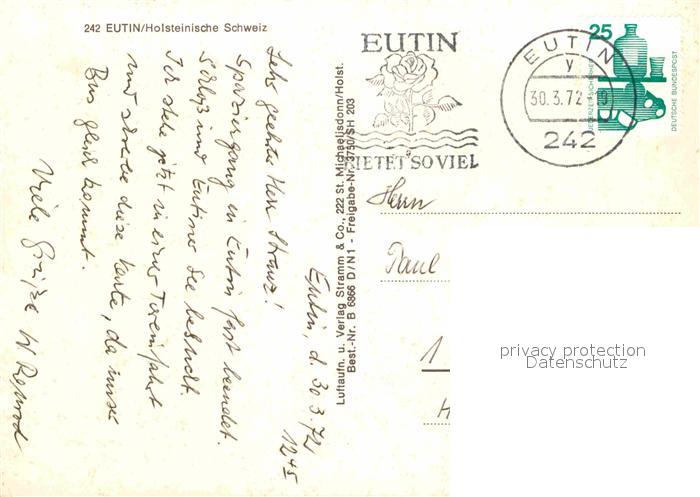 242 EUTIN/Holsteinische Schweiz
Eutin, d. 30.3.72
12⁴⁵
Sehr geehrter Herr Stranz!
Spaziergang in Eutin fast beendet.
Schloß und Eutiner See besucht.
Ich stehe jetzt in einer Toreinfahrt
und schreibe diese Karte, da unser
Bus gleich kommt.
Viele Grüße W
Luftaufn. u. Verlag Stramm & Co., 222 St. Michaelisdonn/Holst.
Best.-Nr. B 6866 D/N1 - Freigabe-Nr. 3750/SH 203
EUTIN
BIETET SO VIEL
EUTIN
y
30.3.72
242
25
JEDERZEIT SICHERHEIT
DEUTSCHE BUNDESPOST
Herrn
Paul
1
H
privacy protection
Datenschutz